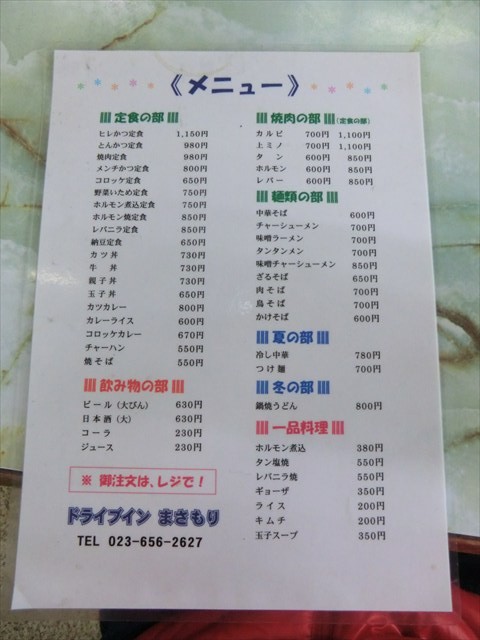 《メニュー》
定食の部
ヒレかつ定食 1,150円
とんかつ定食 980円
焼肉定食 980円
メンチかつ定食 800円
コロッケ定食 650円
野菜いため定食 750円
ホルモン煮込定食 750円
ホルモン焼定食 850円
レバニラ定食 850円
納豆定食 650円
カツ丼 730円
牛丼 730円
親子丼 730円
玉子丼 650円
カツカレー 800円
カレーライス 600円
コロッケカレー 670円
チャーハン 550円
焼そば 550円
飲み物の部
ビール（大びん） 630円
日本酒（大） 630円
コーラ 230円
ジュース 230円
※ 御注文は、レジで！
ドライブイン まさもり
TEL 023-656-2627
焼肉の部（定食の部）
カルビ 700円 1,100円
上ミノ 700円 1,100円
タン 600円 850円
ホルモン 600円 850円
レバー 600円 850円
麺類の部
中華そば 600円
チャーシューメン 700円
味噌ラーメン 700円
タンタンメン 700円
味噌チャーシューメン 850円
ざるそば 650円
肉そば 700円
鳥そば 700円
かけそば 600円
夏の部
冷し中華 780円
つけ麺 700円
冬の部
鍋焼うどん 800円
一品料理
ホルモン煮込 380円
タン塩焼 550円
レバニラ焼 550円
ギョーザ 350円
ライス 200円
キムチ 200円
玉子スープ 350円